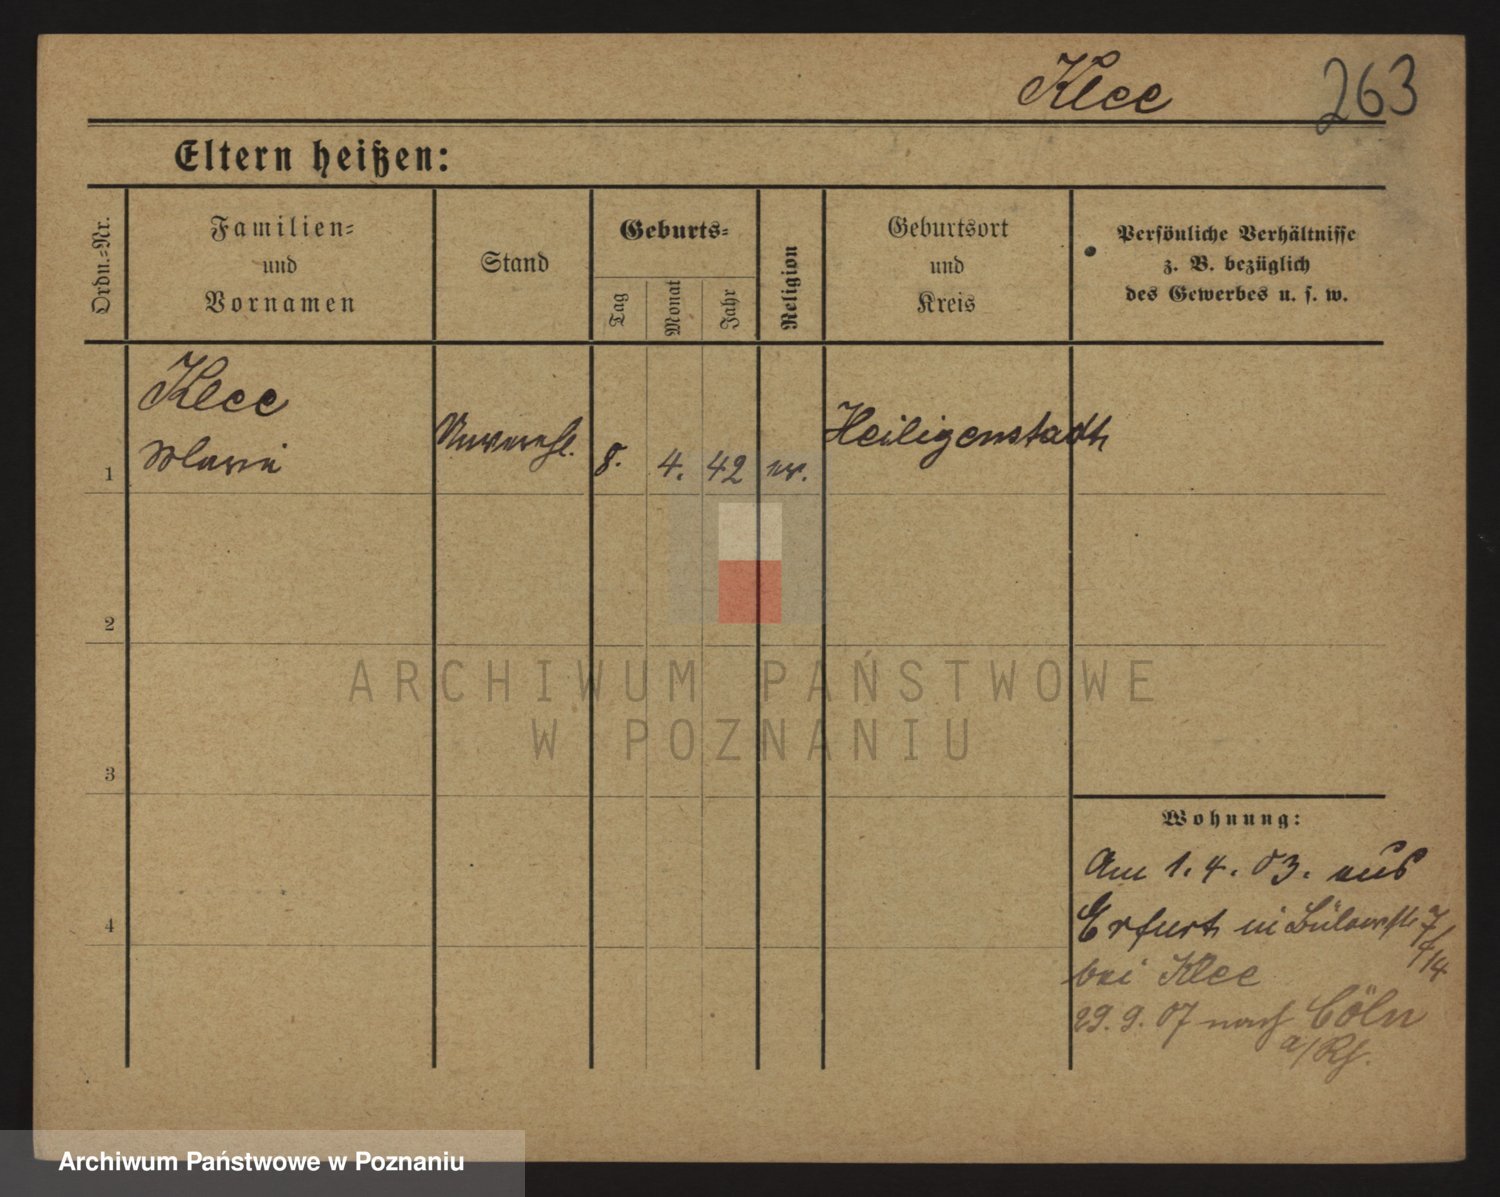 Klee 263
Eltern heißen:
Ordn.-Nr.
Familien-
und
Vornamen
Stand
Geburts-
Tag
Monat
Jahr
Religion
Geburtsort
und
Kreis
Persönliche Verhältnisse
z. B. bezüglich
des Gewerbes u. s. w.
Klee
Marie
1
Unverehl.
8. 4. 42 ev.
Heiligenstadt
2
ARCHIWUM PAŃSTWOWE
W POZNANIU
3
4
Wohnung:
Am 1. 4. 03. aus
Erfurt in Bülowstr. 7/4/14
bei Klee
29. 9. 07 nach Cöln
a/Rh.
Archiwum Państwowe w Poznaniu